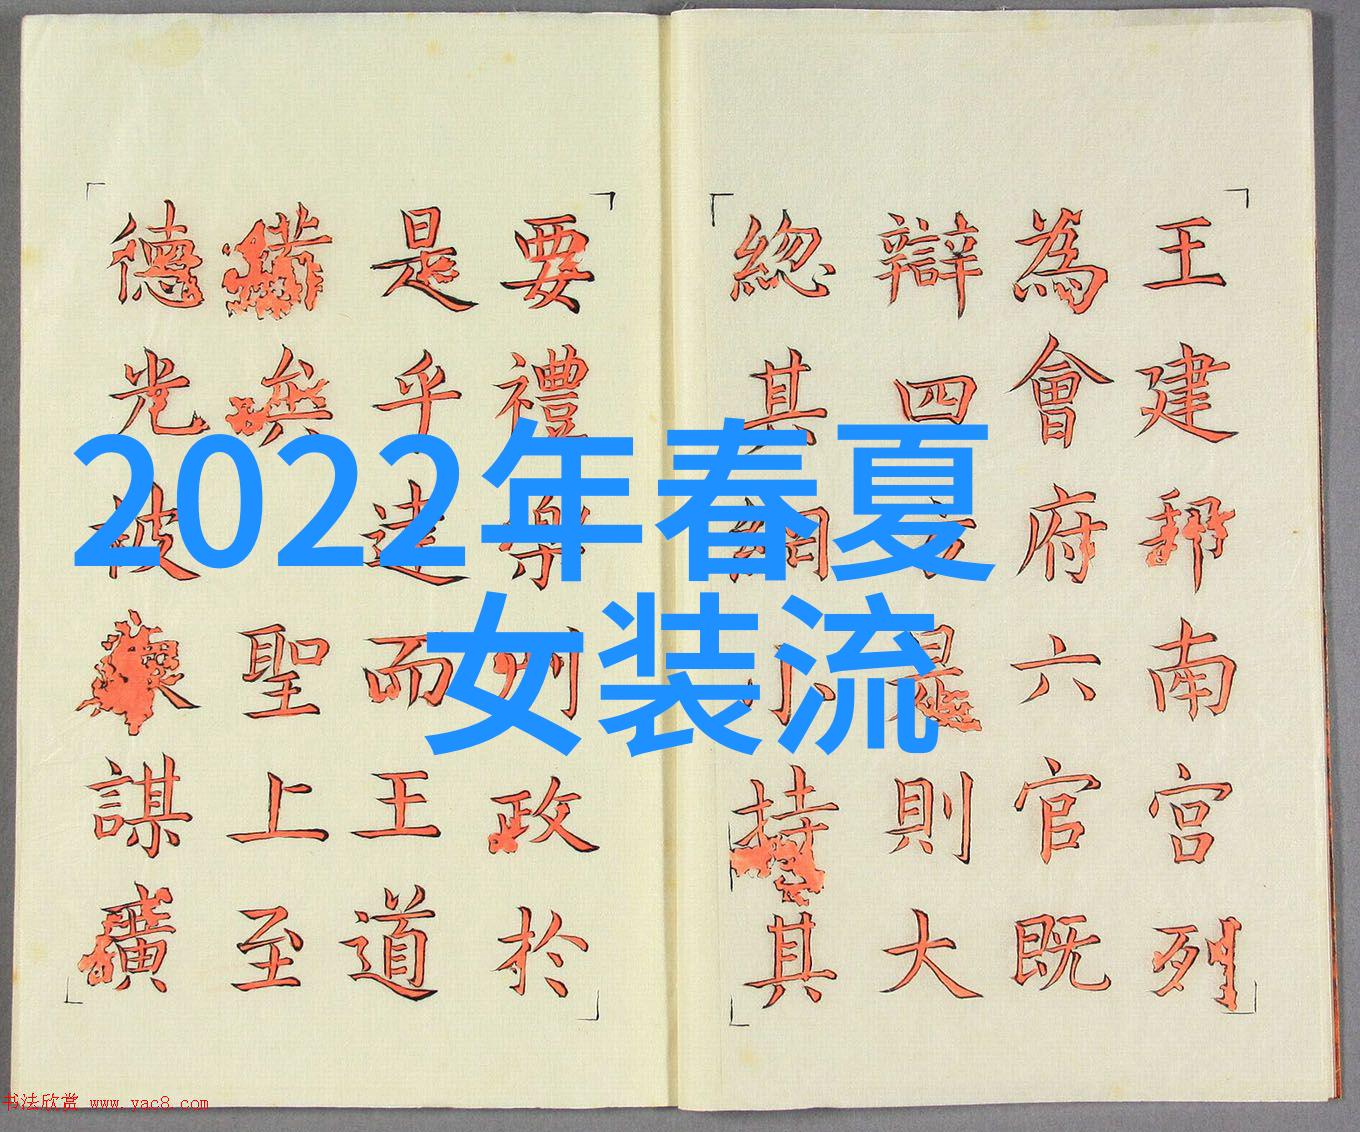 王建邦南宮列
為會府六官既
辯四是則大
緫其綱持其
要禮樂政於
是乎達而王道
聖上至
德光被謀
2022年春夏
女装流
书法欣赏 www.yac8.com